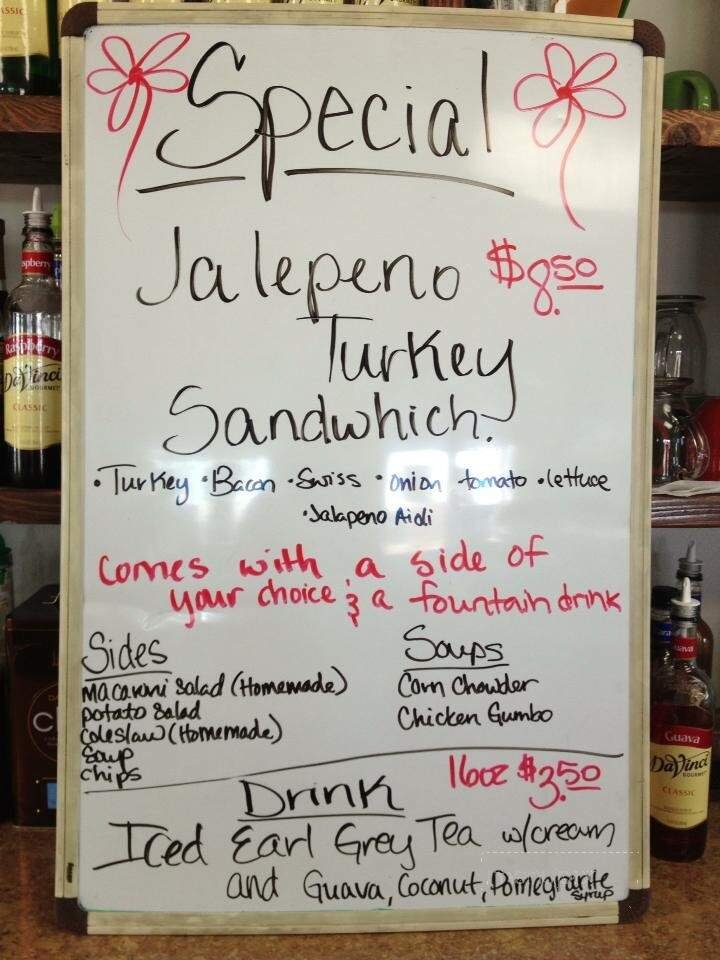 Special
Jalepeno $8.50
Turkey
Sandwhich
• Turkey • Bacon • Swiss • onion tomato • lettuce
• Jalapeno Aioli
Comes with a side of
your choice & a fountain drink
Sides
Macaroni Salad (Homemade)
potato Salad
Coleslaw (Homemade)
Soup
Chips
Soups
Corn Chowder
Chicken Gumbo
Drink 16oz $3.50
Iced Earl Grey Tea w/cream
and Guava, Coconut, Pomegranite
syrup
Raspberry
DaVinci
GOURMET
CLASSIC
Guava
DaVinci
GOURMET
CLASSIC